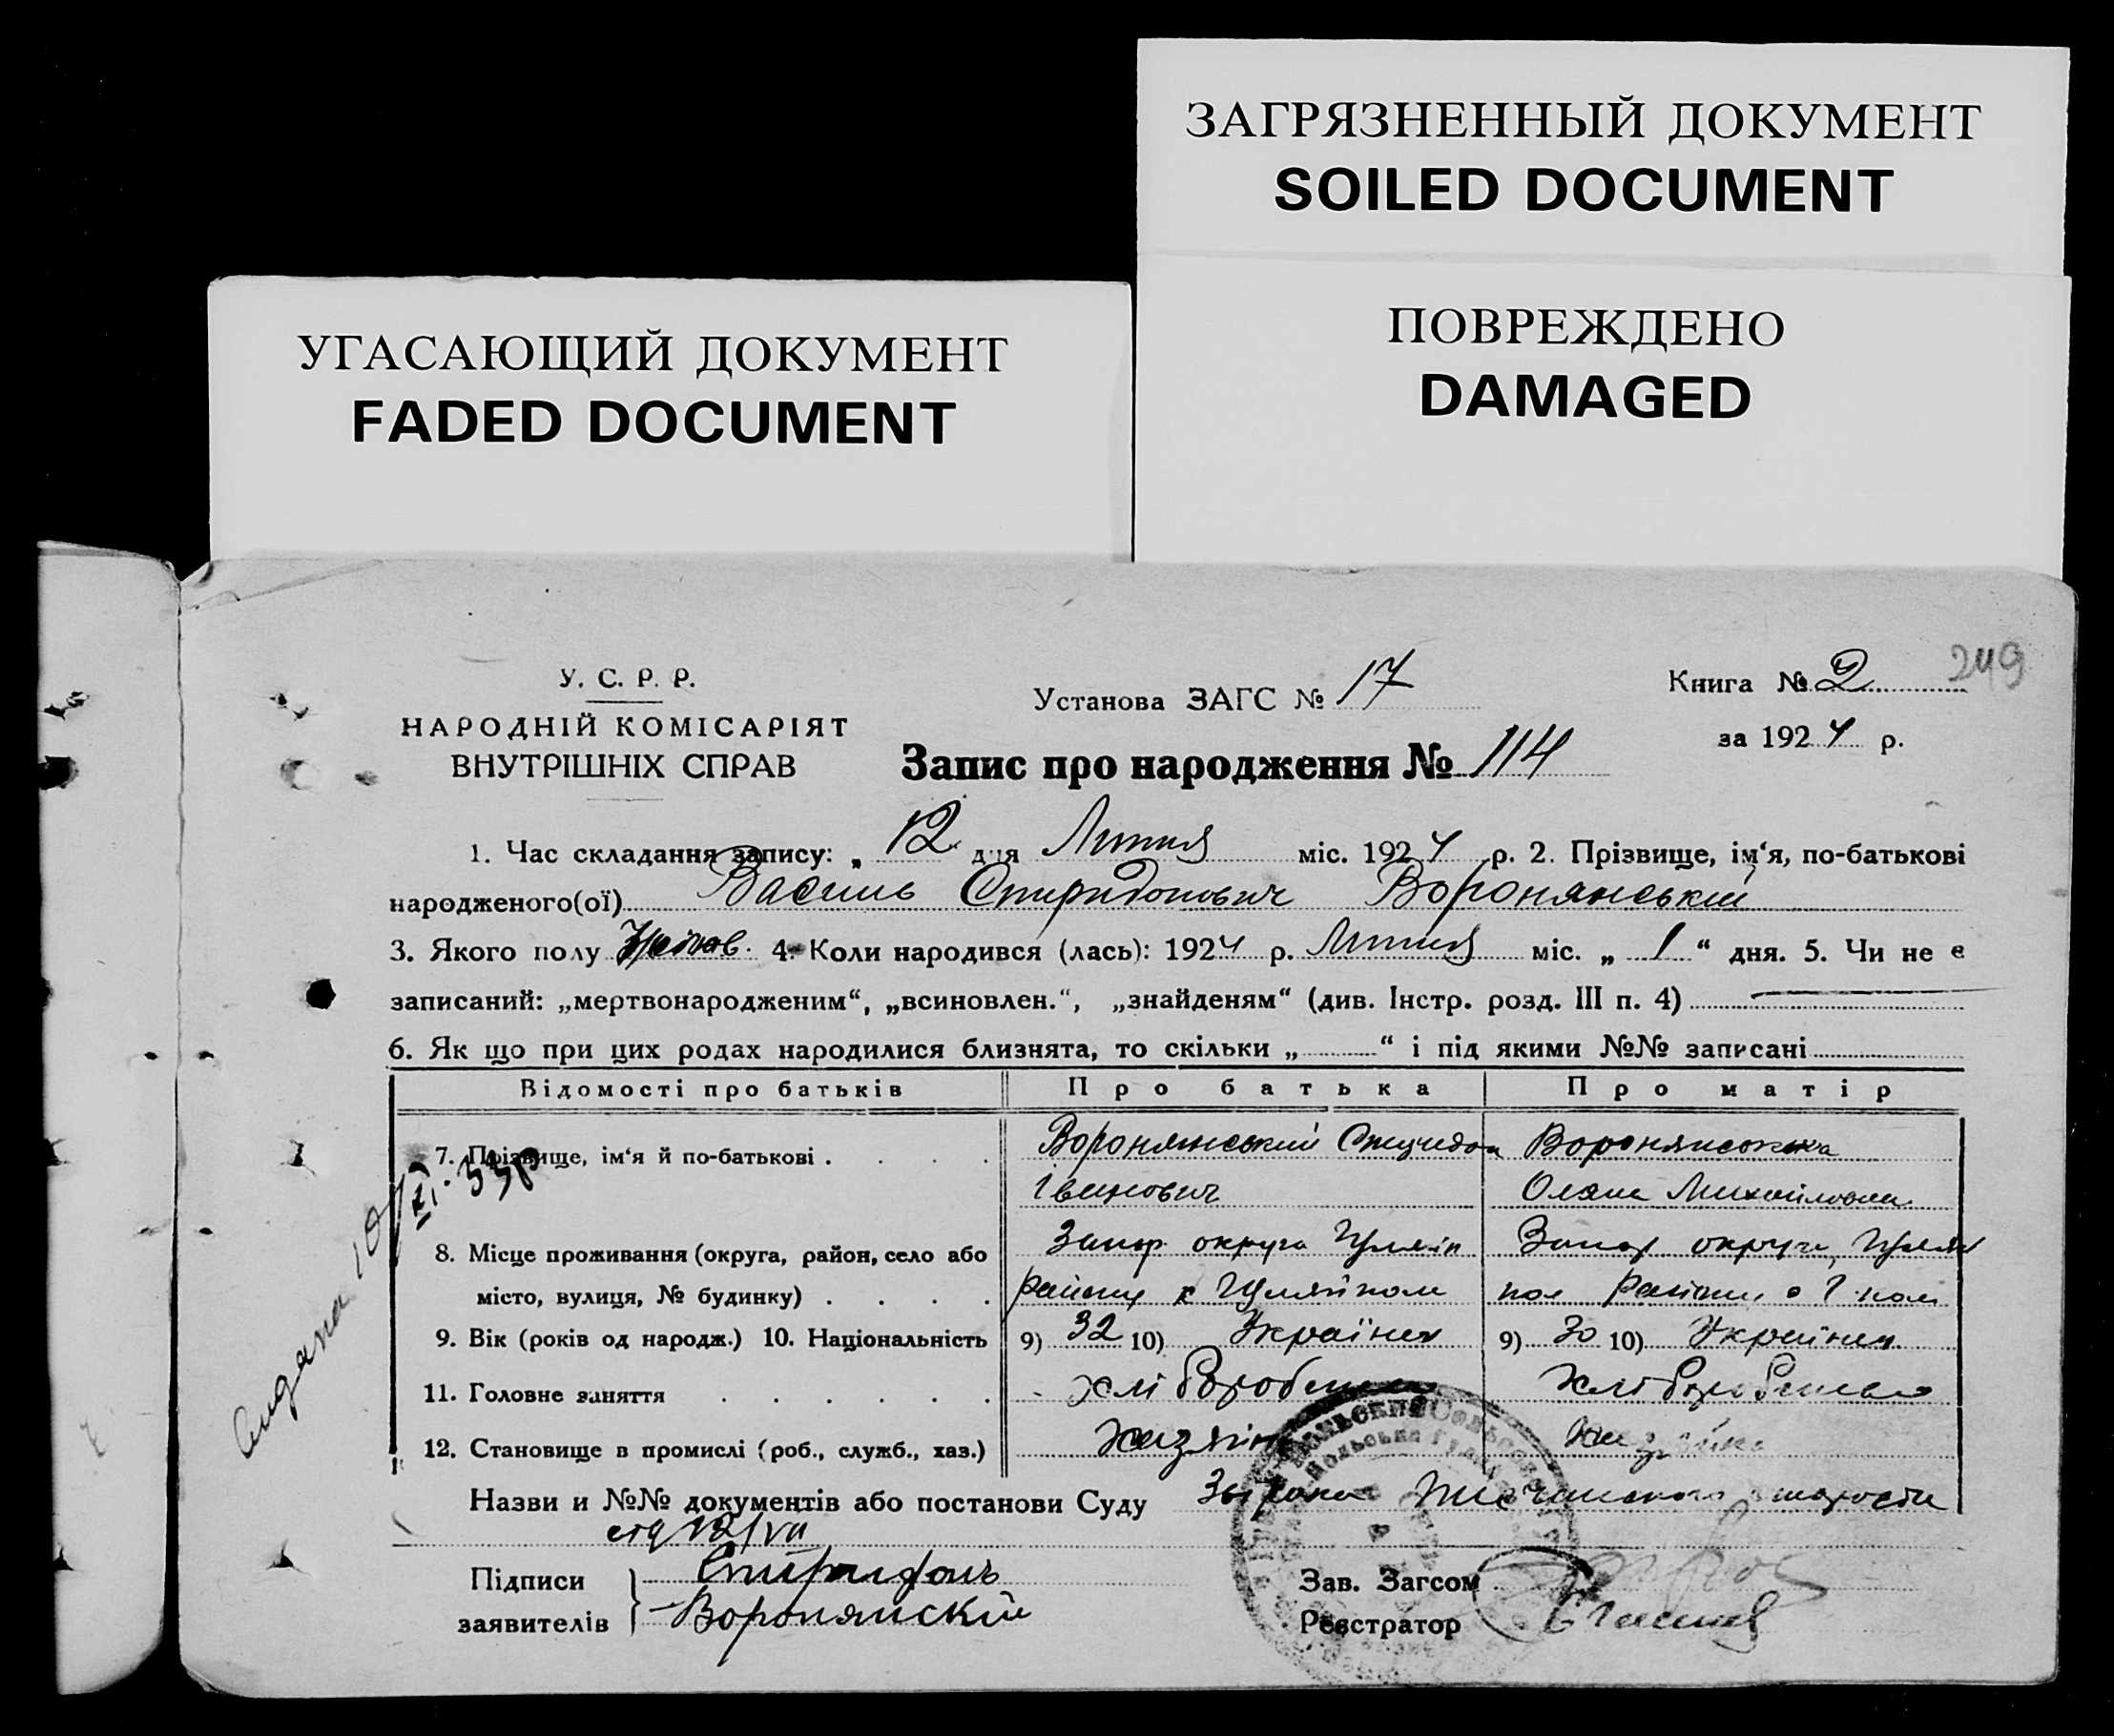 ЗАГРЯЗНЕННЫЙ ДОКУМЕНТ
SOILED DOCUMENT
УГАСАЮЩИЙ ДОКУМЕНТ
FADED DOCUMENT
ПОВРЕЖДЕНО
DAMAGED
249
У. С. Р. Р.
НАРОДНІЙ КОМІСАРІЯТ
ВНУТРІШНІХ СПРАВ
Установа ЗАГС № 17
Книга № 2
за 1924 р.
Запис про народження № 114
1. Час складання запису: „ 12 дня Липня міс. 1924 р. 2. Прізвище, ім‘я, по-батькові
народженого(ої) Василь Спиридонович Воронянський
3. Якого полу 4. Коли народився (лась): 1924 р. Липня міс. „ 1 “ дня. 5. Чи не є
записаний: „мертвонародженим“, „всиновлен.“, „знайденям“ (див. Інстр. розд. III п. 4)
6. Як що при цих родах народилися близнята, то скільки „ “ і під якими №№ записані
Відомості про батьків Про батька Про матір
7. Прізвище, ім‘я й по-батькові . . . . Воронянський Спиридон Воронянська
Іванович Оляна Михайловна
8. Місце проживання (округа, район, село або Запор округа Гуляйп Запор округи, Гуляй
місто, вулиця, № будинку) . . . . району с Гуляйполе пол району с Г поле
9. Вік (років од народж.) 10. Національність 9) 32 10) Україн 9) 30 10) Україн
11. Головне заняття . . . . . . хлібороб хлібороб
12. Становище в промислі (роб., служб., хаз.) Хазяін Хазяйка
Назви и №№ документів або постанови Суду
12/VII
Підписи Спиридонъ
заявителів Воронянский
Зав. Загсом
Реєстратор